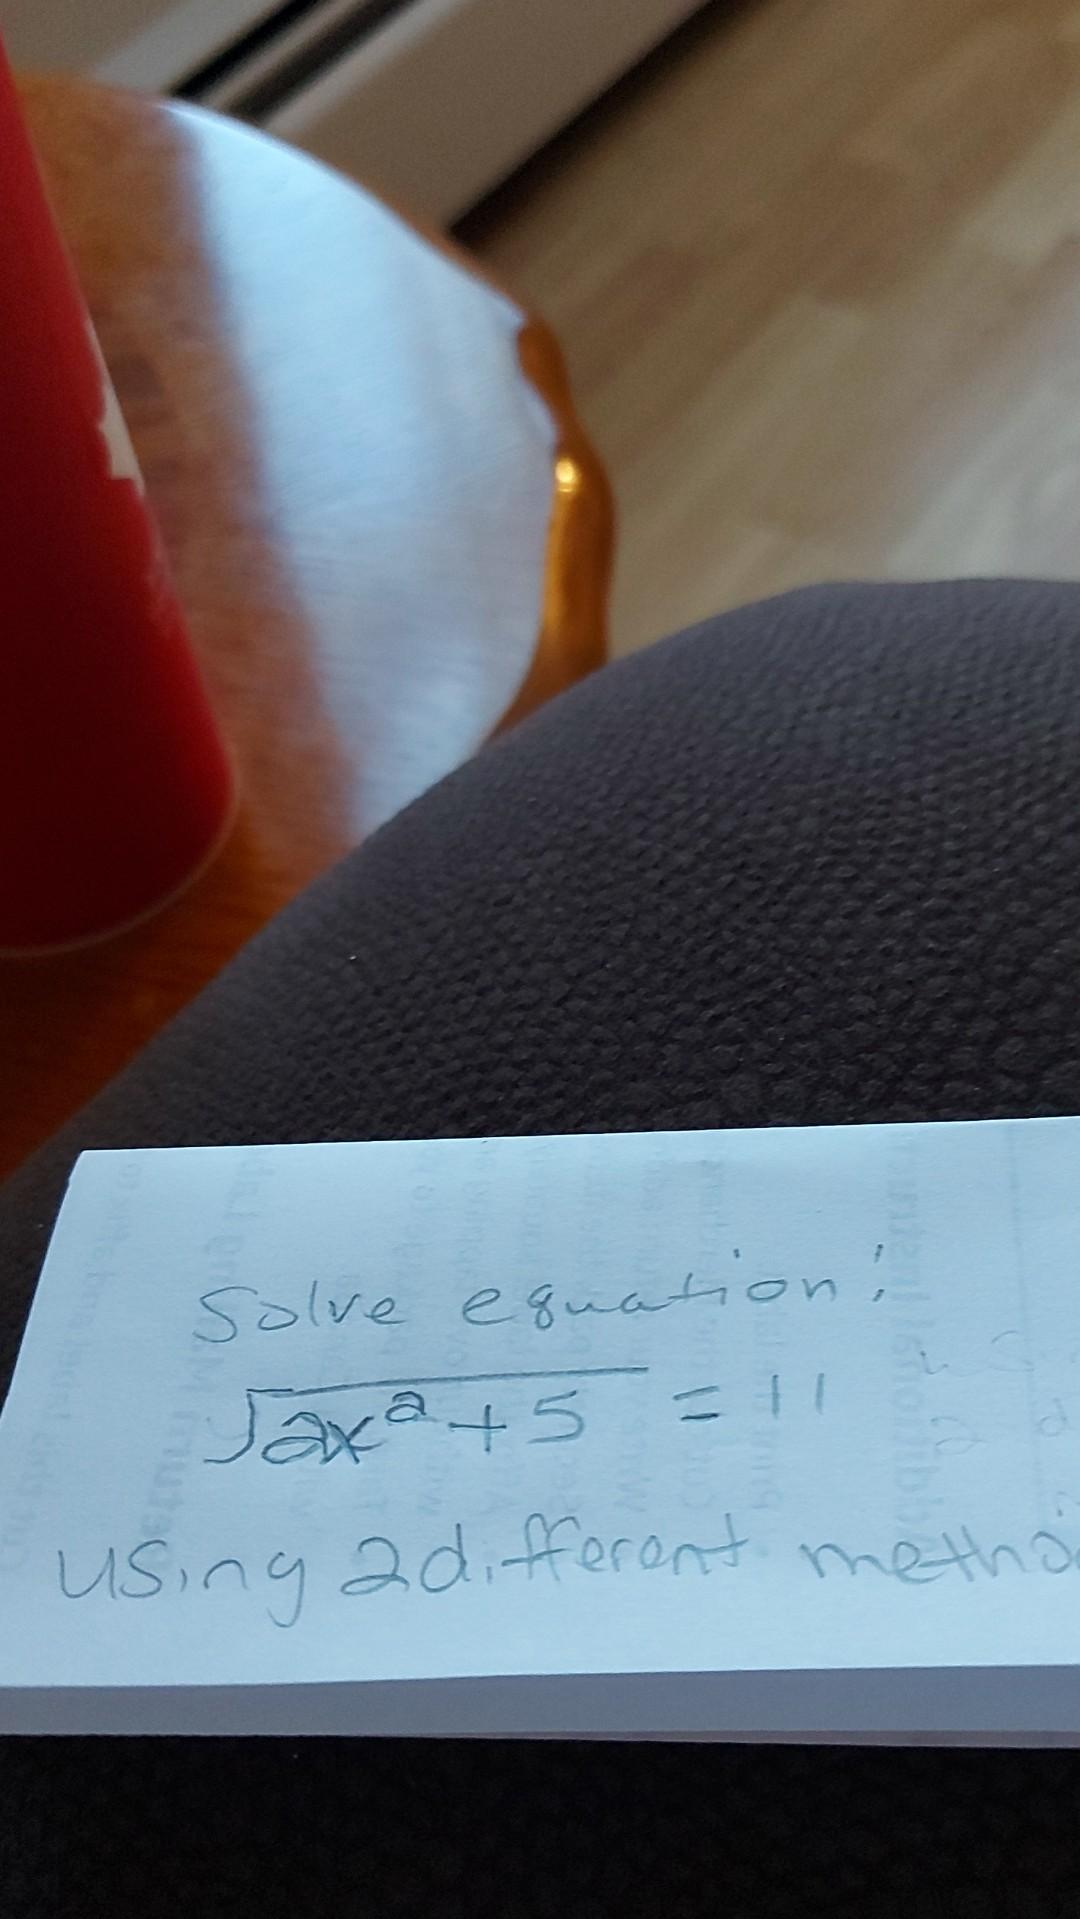 Solve equation:
√2x²+5 = 11
using 2 different